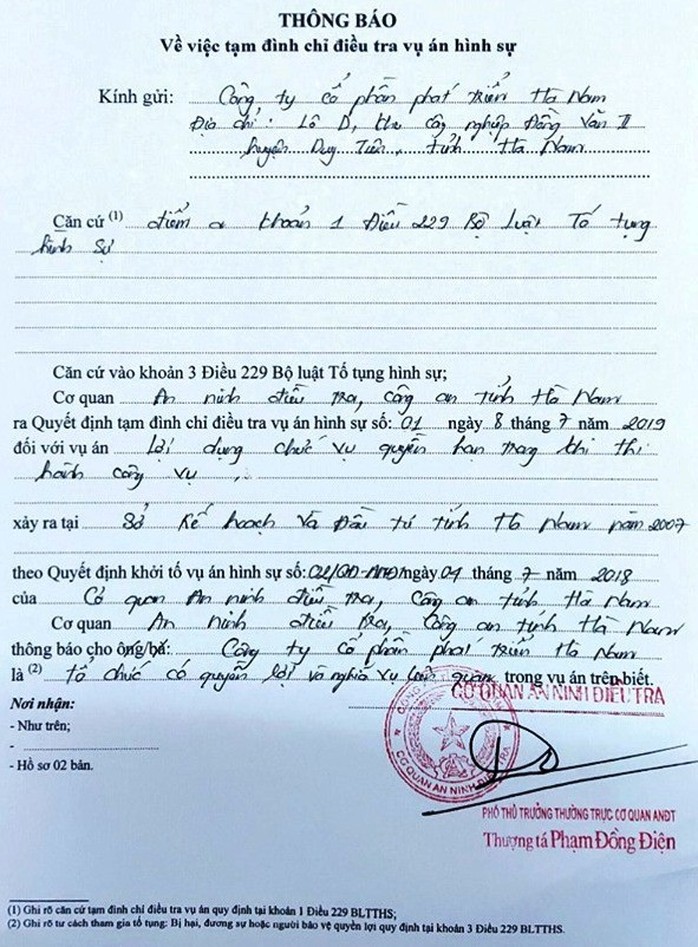 THÔNG BÁO
Về việc tạm đình chỉ điều tra vụ án hình sự
Kính gửi: Công ty cổ phần phát triển Hà Nam
Địa chỉ: Lô D, khu công nghiệp Đồng Văn II
huyện Duy Tiên, tỉnh Hà Nam
Căn cứ (1) điểm a khoản 1 Điều 229 Bộ luật Tố tụng
hình sự
Căn cứ vào khoản 3 Điều 229 Bộ luật Tố tụng hình sự;
Cơ quan An ninh điều tra, công an tỉnh Hà Nam
ra Quyết định tạm đình chỉ điều tra vụ án hình sự số: 01 ngày 8 tháng 7 năm 2019
đối với vụ án Lợi dụng chức vụ quyền hạn trong khi thi
hành công vụ
xảy ra tại Sở Kế hoạch và Đầu tư tỉnh Hà Nam năm 2007
theo Quyết định khởi tố vụ án hình sự số: ngày 04 tháng 7 năm 2018
của Cơ quan An ninh điều tra, Công an tỉnh Hà Nam
Cơ quan An ninh điều tra, Công an tỉnh Hà Nam
thông báo cho ông/bà: Công ty cổ phần phát triển Hà Nam
là (2) tổ chức có quyền lợi và nghĩa vụ liên quan trong vụ án trên biết.
Nơi nhận:
- Như trên;
-
- Hồ sơ 02 bản.
CƠ QUAN AN NINH ĐIỀU TRA
CƠ QUAN AN NINH ĐIỀU TRA
PHÓ THỦ TRƯỞNG THƯỜNG TRỰC CƠ QUAN ANĐT
Thượng tá Phạm Đồng Điện
(1) Ghi rõ căn cứ tạm đình chỉ điều tra vụ án quy định tại khoản 1 Điều 229 BLTTHS;
(2) Ghi rõ tư cách tham gia tố tụng: Bị hại, đương sự hoặc người bảo vệ quyền lợi quy định tại khoản 3 Điều 229 BLTTHS.